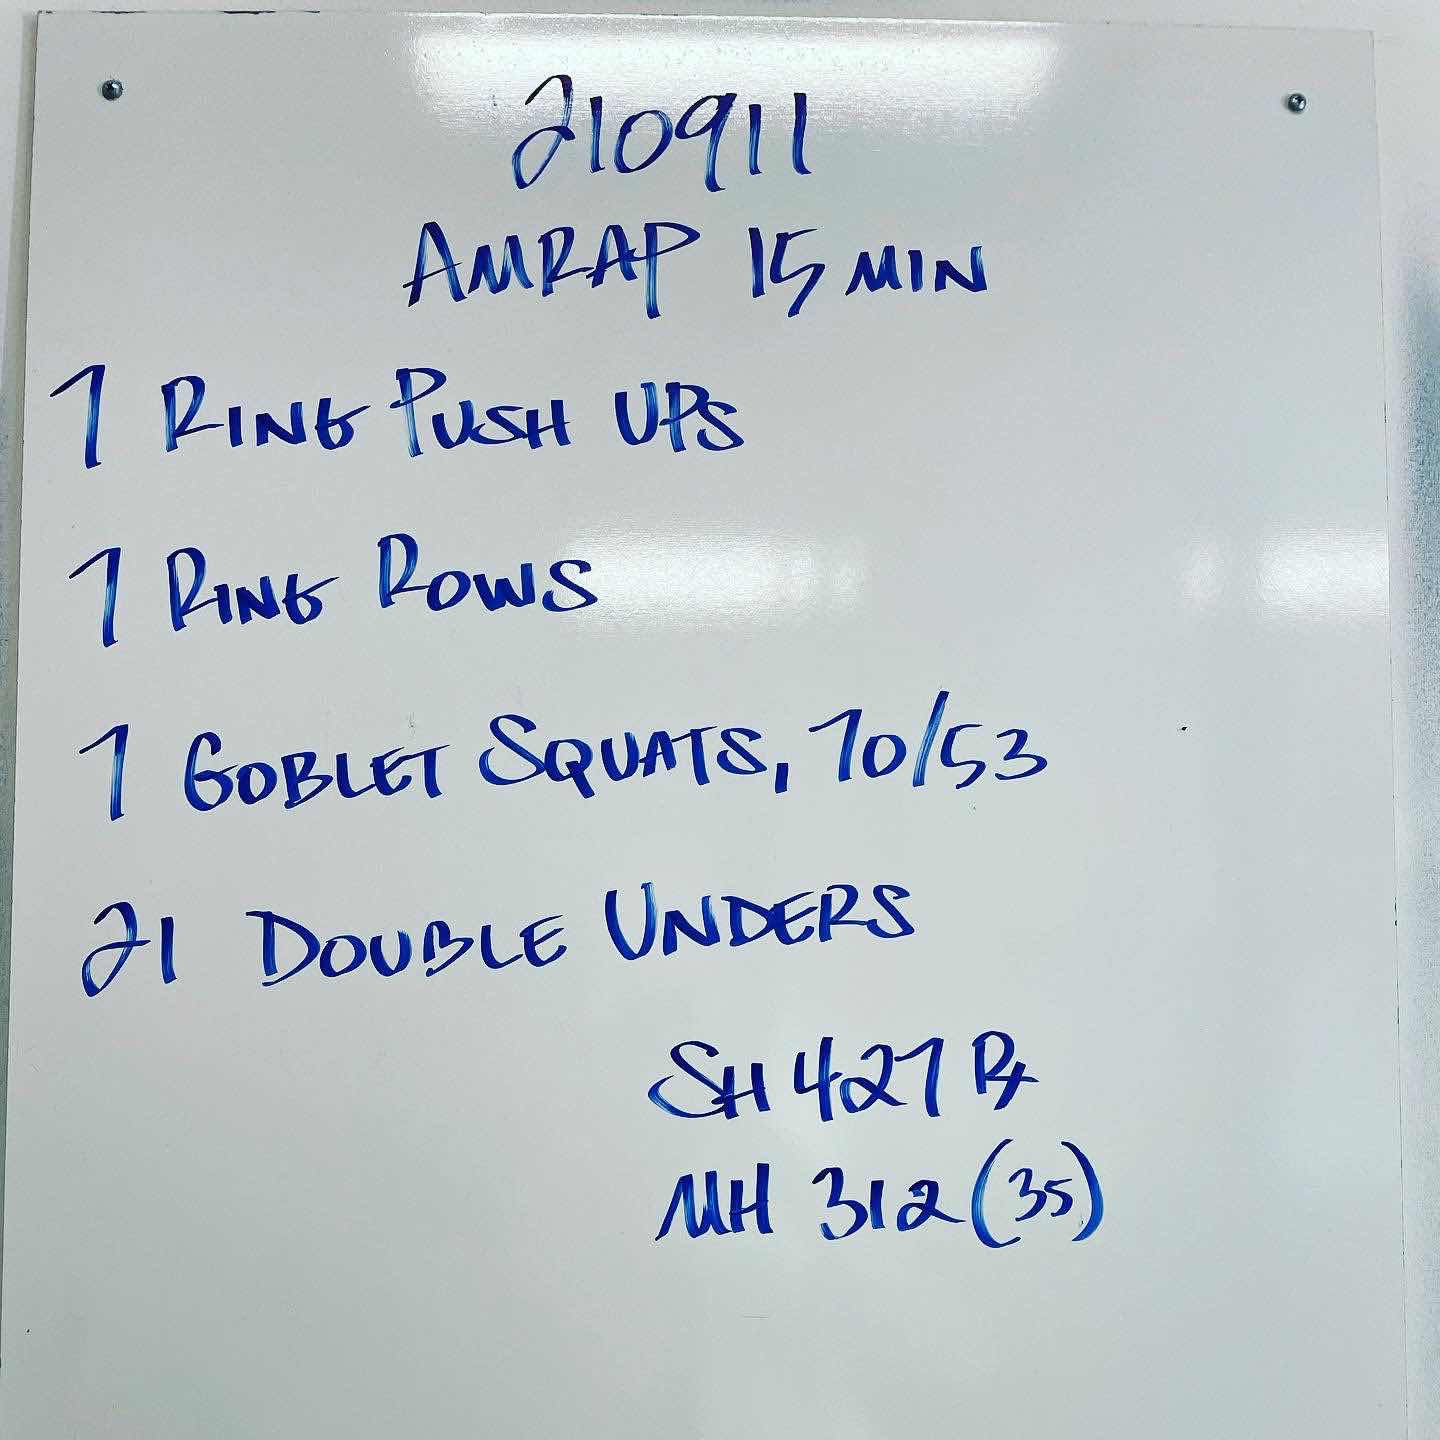 210911
AMRAP 15 MIN
7 RING PUSH UPS
7 RING ROWS
7 GOBLET SQUATS, 70/53
21 DOUBLE UNDERS
SH 427 Rx
MH 312 (35)